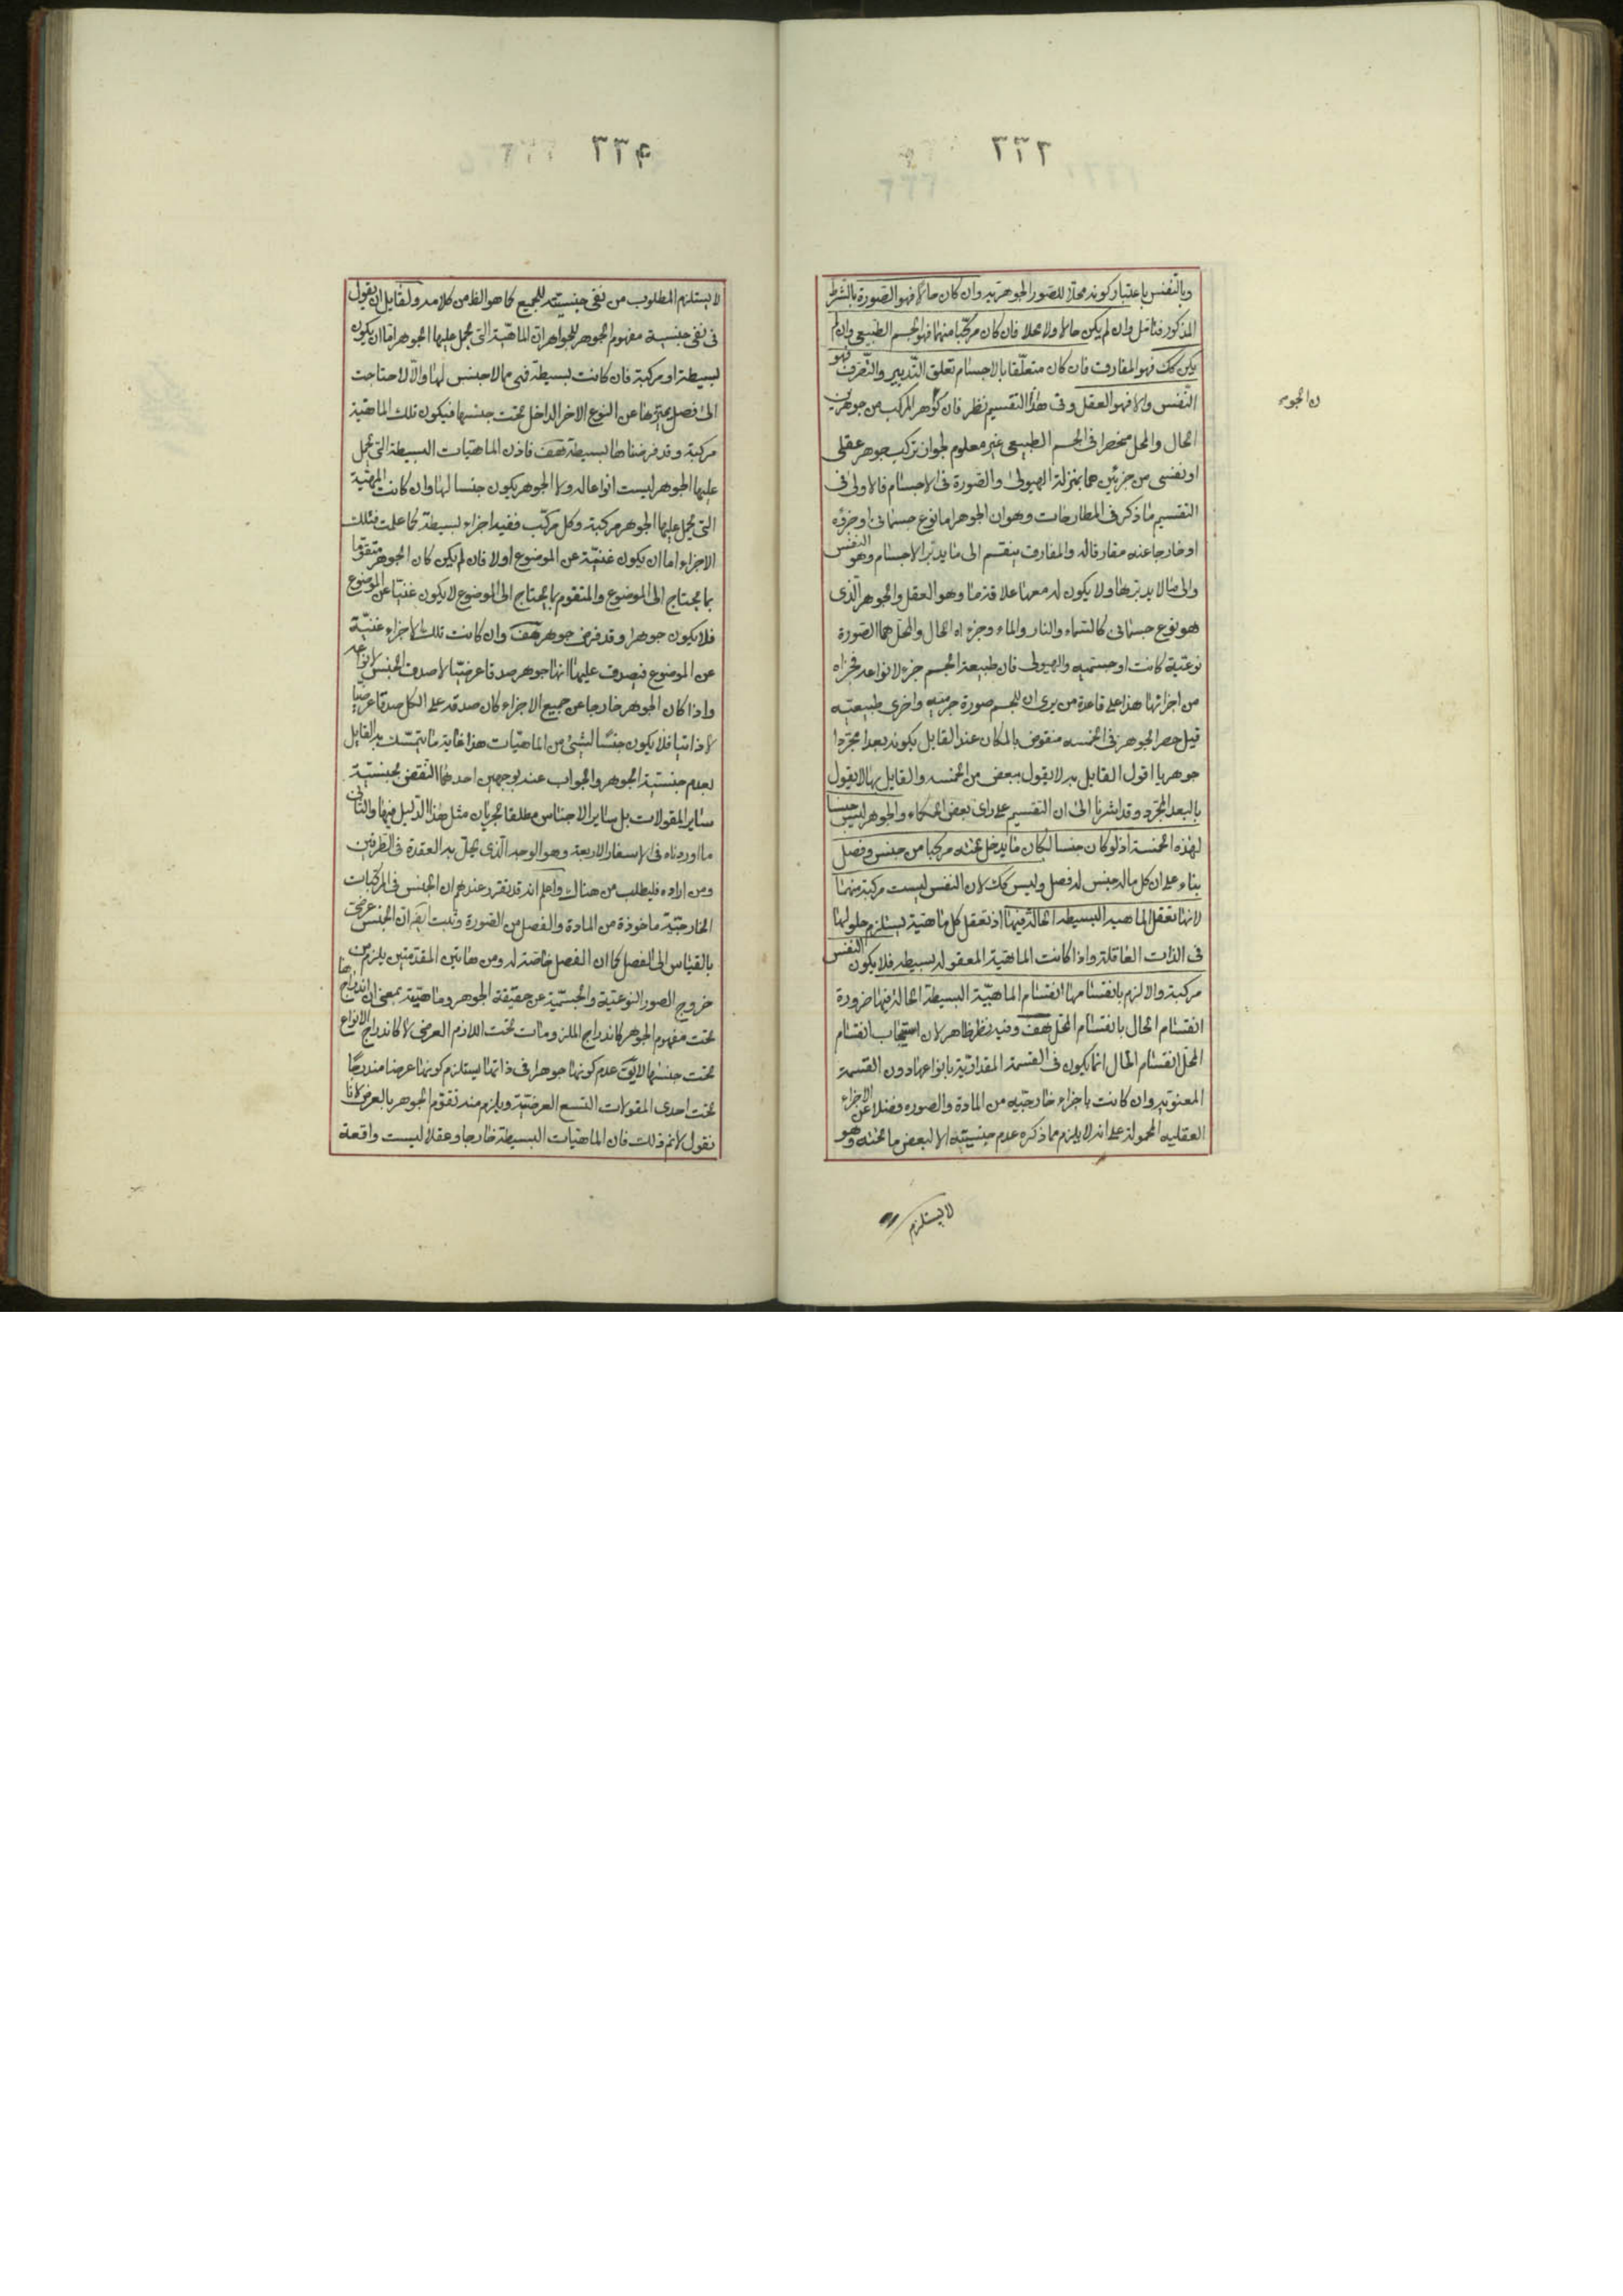 ٣٣٣
وبالنفس باعتبار كونه محلا للصور الجوهرية وان كان حالا فهو الصورة بالشرط
المذكور فتامل وان لم يكن حالا ولا محلا فان كان مركبا منهما فهو الجسم الطبيعى وان لم
يكن كك فهو المفارق فان كان متعلقا بالاجسام تعلق التدبير والتصرف فهو
النفس والا فهو العقل وفى هذا التقسيم نظر فان كون الجوهر المركب من جوهرين
ن الجوهر
الحال والمحل منحصرا فى الجسم الطبيعى غير معلوم لجوازن تركب جوهر عقلى
او نفسى من جزئين هما بمنزلة الهيولى والصورة فى الاجسام فالاولى فى
التقسيم ما ذكر فى المطارحات وهو ان الجوهر اما نوع جسمانى او جزؤه
او خارجا عنه مفارقا له والمفارق ينقسم الى ما يدبر الاجسام وهو النفس
والى ما لا يدبرها ولا يكون له معها علاقة ما وهو العقل والجوهر الذى
هو نوع جسمانى كالسماء والنار والماء وجزءاه الحال والمحل هما الصورة
نوعية كانت او جسمية والهيولى فان طبيعة الجسم جزء لانواعه فجزاه
من اجزائها هذا على قاعدة من يرى ان للجسم صورة جرمية واخرى طبيعية
قيل حصر الجوهر فى الخمسه منقوض بالمكان عند القايل بكونه بعدا مجردا
جوهريا اقول القايل به لا يقول ببعض من الخمسه والقايل بها لا يقول
بالبعد المجرد وقد اشرنا الى ان التقسيم على راى بعض الحكماء والجوهر ليس جنسا
لهذه الخمسة اذ لو كان جنسا لكان ما يدخل تحته مركبا من جنس وفصل
بناء على ان كل ماله جنس له فصل وليس كك لان النفس ليست مركبة منهما
لانها تعقل الماهيه البسيطه الحالة فيها اذ تعقل كل ماهية يستلزم حلولها
فى الذات العاقلة واذا كانت الماهية المعقوله بسيطه فلا يكون النفس
مركبة والا لزم بانقسامها انقسام الماهية البسيطة الحالة فيها ضرورة
انقسام الحال بانقسام المحل هف وفيه نظر ظاهر لان استيجاب انقسام
المحل انقسام الحال انما يكون فى القسمة المقدارية بانواعها دون القسمة
المعنويه وان كانت باجزاء خارجيه من المادة والصوره فضلا عن الاجزاء
العقليه المحمولة على انه لا يلزم مما ذكره عدم جنسيته الا لبعض ما تحته وهو
لا يستلزم
٣٣٤
لا يستلزم المطلوب من نفى جنسيته للجميع كما هو الظ من كلامه ولقايل ان يقول
فى نفى جنسية مفهوم الجوهر للجواهر ان الماهية التى يحمل عليها الجوهر اما ان يكون
بسيطة او مركبة فان كانت بسيطة فهى مما لا جنس لها والا لاحتاجت
الى فصل يميزها عن النوع الاخر الداخل تحت جنسها فيكون تلك الماهية
مركبة وقد فرضناها بسيطة هف فاذن الماهيات البسيطة التى يحمل
عليها الجوهر ليست انواعا له ولا الجوهر يكون جنسا لها وان كانت المهية
التى يحمل عليها الجوهر مركبة وكل مركب ففيه اجزاء بسيطة كما علمت فتلك
الاجزاء اما ان يكون غنية عن الموضوع اولا فان لم يكن كان الجوهر متقوما
بما يحتاج الى الموضوع والمتقوم بما يحتاج الى الموضوع لا يكون غنيا عن الموضوع
فلا يكون جوهرا وقد فرض جوهر هف وان كانت تلك الاجزاء غنية
عن الموضوع فيصدق عليها انها جوهر صدقا عرضيا لا صدق الجنس لانواعه
واذا كان الجوهر خارجا عن جميع الاجزاء كان صدقه على الكل صدقا عرضيا
لا ذاتيا فلا يكون جنسا لشئ من الماهيات هذا غاية ما يتمسك به القايل
بعدم جنسية الجوهر والجواب عنه بوجهين احدهما النقض بجنسية
ساير المقولات بل ساير الاجناس مطلقا لجريان مثل هذا الدليل فيها والثانى
ما اوردناه فى الاسفار الاربعة وهو الوجه الذى يحل به العقدة فى الطرفين
ومن اراده فليطلب من هناك واعلم انه قد تقرر عندهم ان الجنس فى المركبات
الخارجية ماخوذة من المادة والفصل من الصورة وثبت ايضا ان الجنس عرض
بالقياس الى الفصل كما ان الفصل خاصة له ومن هاتين المقدمتين يلزم من
خروج الصور النوعية والجسمية عن حقيقة الجوهر وماهية بمعنى ان اندراجها
تحت مفهوم الجوهر كاندراج الملزومات تحت اللازم العرضى لا كاندراج الانواع
تحت جنسها لا يق عدم كونها جوهرا فى ذاتها يستلزم كونها عرضا مندرجا
تحت احدى المقولات التسع العرضية ويلزم منه تقوم الجوهر بالعرض لانا
نقول لانم ذلك فان الماهيات البسيطة خارجا وعقلا ليست واقعة